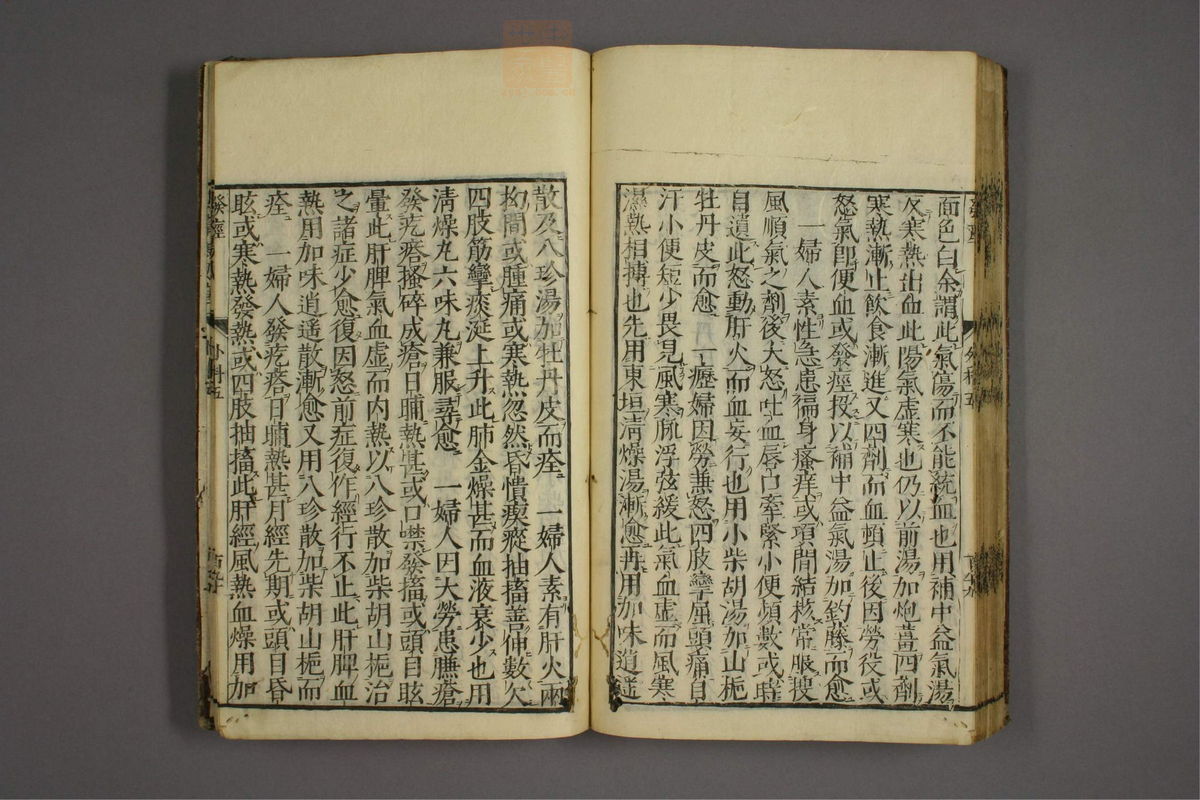 面色白余謂此氣傷而不能統血也用補中益氣湯
又寒熱出血此陽氣虛寒也仍以前湯加炮薑四劑
寒熱漸止飲食漸進又四劑而血頓止後因勞役或
怒氣卽便血或發痙投以補中益氣湯加釣藤而愈
一婦人素性急患徧身瘙痒或項間結核常服搜
風順氣之劑後大怒吐血唇口牽緊小便頻數或
自遺此怒動肝火而血妄行也用小柴胡湯加山梔
牡丹皮而愈 一孀婦因勞兼怒四肢攣屈頭痛自
汗小便短少畏見風寒脈浮弦緩此氣血虛而風寒
濕熱相搏也先用東垣淸燥湯漸愈再用加味逍遙
散及八珍湯加牡丹皮而痊 一婦人素有肝火兩
拗間或腫痛或寒熱忽然昏憒瘈瘲抽搐善伸數欠
四肢筋攣痰涎上升此肺金燥甚而血液衰少也用
淸燥丸六味丸兼服尋愈 一婦人因大勞患臁瘡
發疙瘩搔碎成瘡日晡熱甚或口噤發搐或頭目眩
暈此肝脾氣血虛而內熱以八珍散加柴胡山梔治
之諸症少愈復因怒前症復作經行不止此肝脾血
熱用加味逍遙散漸愈又用八珍散加柴胡山梔而
痊 一婦人發疙瘩日晡熱甚月經先期或頭目昏
眩或寒熱發熱或四肢抽搐此肝經風熱血燥用加
發痙
外科五